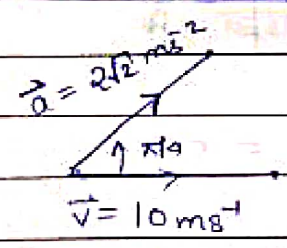 a⃗ = 2√2 ms⁻²
π/4
v⃗ = 10 ms⁻¹